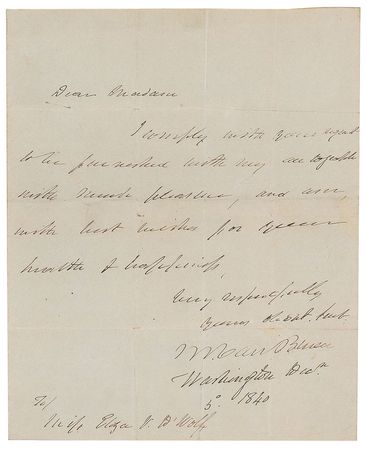 Dear Madam
I comply with your request
to be furnished with my autograph
with much pleasure, and am,
with best wishes for your
health & happiness,
Very respectfully
yours obedt. Servt.
M. Van Buren
Washington Decr.
5. 1840
To/
Miss Eliza V. D'Wolf